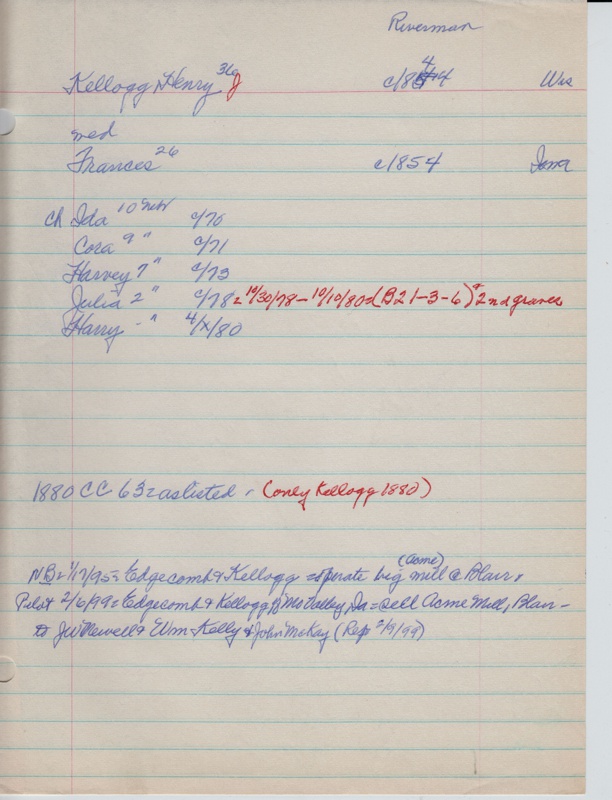 Riverman
Kellogg Henry 36 J c/844 Wis
wed
Frances 26 c/854 Iowa
ch Ida 10 Nebr c/70
Cora 9 " c/71
Harvey 7 " c/73
Julia 2 " c/78 = 10/30/78 - 10/10/80 = (B21-3-6) 2nd graves
Harry - " 4/x/80
1880 CC 63 = as listed. (only Kellogg 1880)
(acme)
NB = 1/17/95 = Edgecomb & Kellogg = operate big mill @ Blair,
Pilot 2/6/99 = Edgecomb & Kellogg Mo Valley, Ia = sell Acme Mill, Blair -
to JW Newell & Wm Kelly & John McKay (Rep 2/9/99)